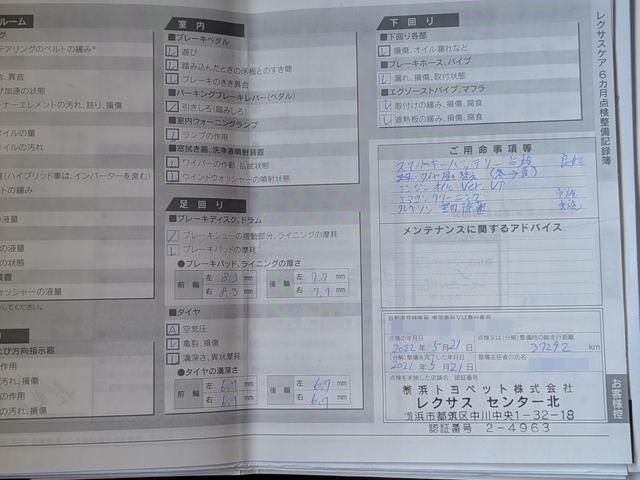 ルーム
テアリングのベルトの緩み*
合、異音
び加速の状態
ナーエレメントの汚れ、詰り、損傷
オイルの量
オイルの汚れ
(ハイブリッド車は、インバーターを含む)
ルトの緩み
の液量
の液量
の状態
装置
ォッシャーの液量
してください。
よび方向指示器
作用
汚れ、損傷
の作用
汚れ、損傷
室内
■ブレーキペダル
レ 遊び
レ 踏み込んだときの床板とのすき間
レ ブレーキのきき具合
■パーキングブレーキレバー(ペダル)
引きしろ(踏みしろ)
■室内ウォーニングランプ
ランプの作用
■窓拭き器、洗浄液噴射装置
レ ワイパーの作動、払拭状態
レ ウインドウォッシャーの噴射状態
足回り
■ブレーキディスク、ドラム
ブレーキシューの摺動部分、ライニングの摩耗
レ ブレーキパッドの摩耗
●ブレーキパッド、ライニングの厚さ
前輪 左 8.3 mm 後輪 左 7.7 mm
右 8.3 mm 右 7.7 mm
■タイヤ
A 空気圧
レ 亀裂、損傷
レ 溝深さ、異状摩耗
●タイヤの溝深さ
前輪 左 6.7 mm 後輪 左 6.7 mm
右 6.7 mm 右 6.7 mm
下回り
■下回り各部
レ 損傷、オイル漏れなど
■ブレーキホース、パイプ
レ 漏れ、損傷、取付状態
■エグゾーストパイプ、マフラ
レ 取付けの緩み、損傷、腐食
レ 遮熱板の緩み、損傷、腐食
ご用命事項等
スマートキーバッテリー点検
タイヤ (冬→夏)
エンジンオイル Ver. UP
エアコンクリーニング 実施
実施
メンテナンスに関するアドバイス
点検の年月日
2022年5月21日
点検又は(分解)整備時の総走行距離
37292 km
(分解)整備を完了した年月日
2022年5月21日
整備主任者の氏名
点検を実施した店舗名、認証番号
横浜トヨペット株式会社
レクサス センター北
横浜市都筑区中川中央1-32-18
認証番号 2-4963
レクサスケア 6カ月点検整備記録簿
お客様控